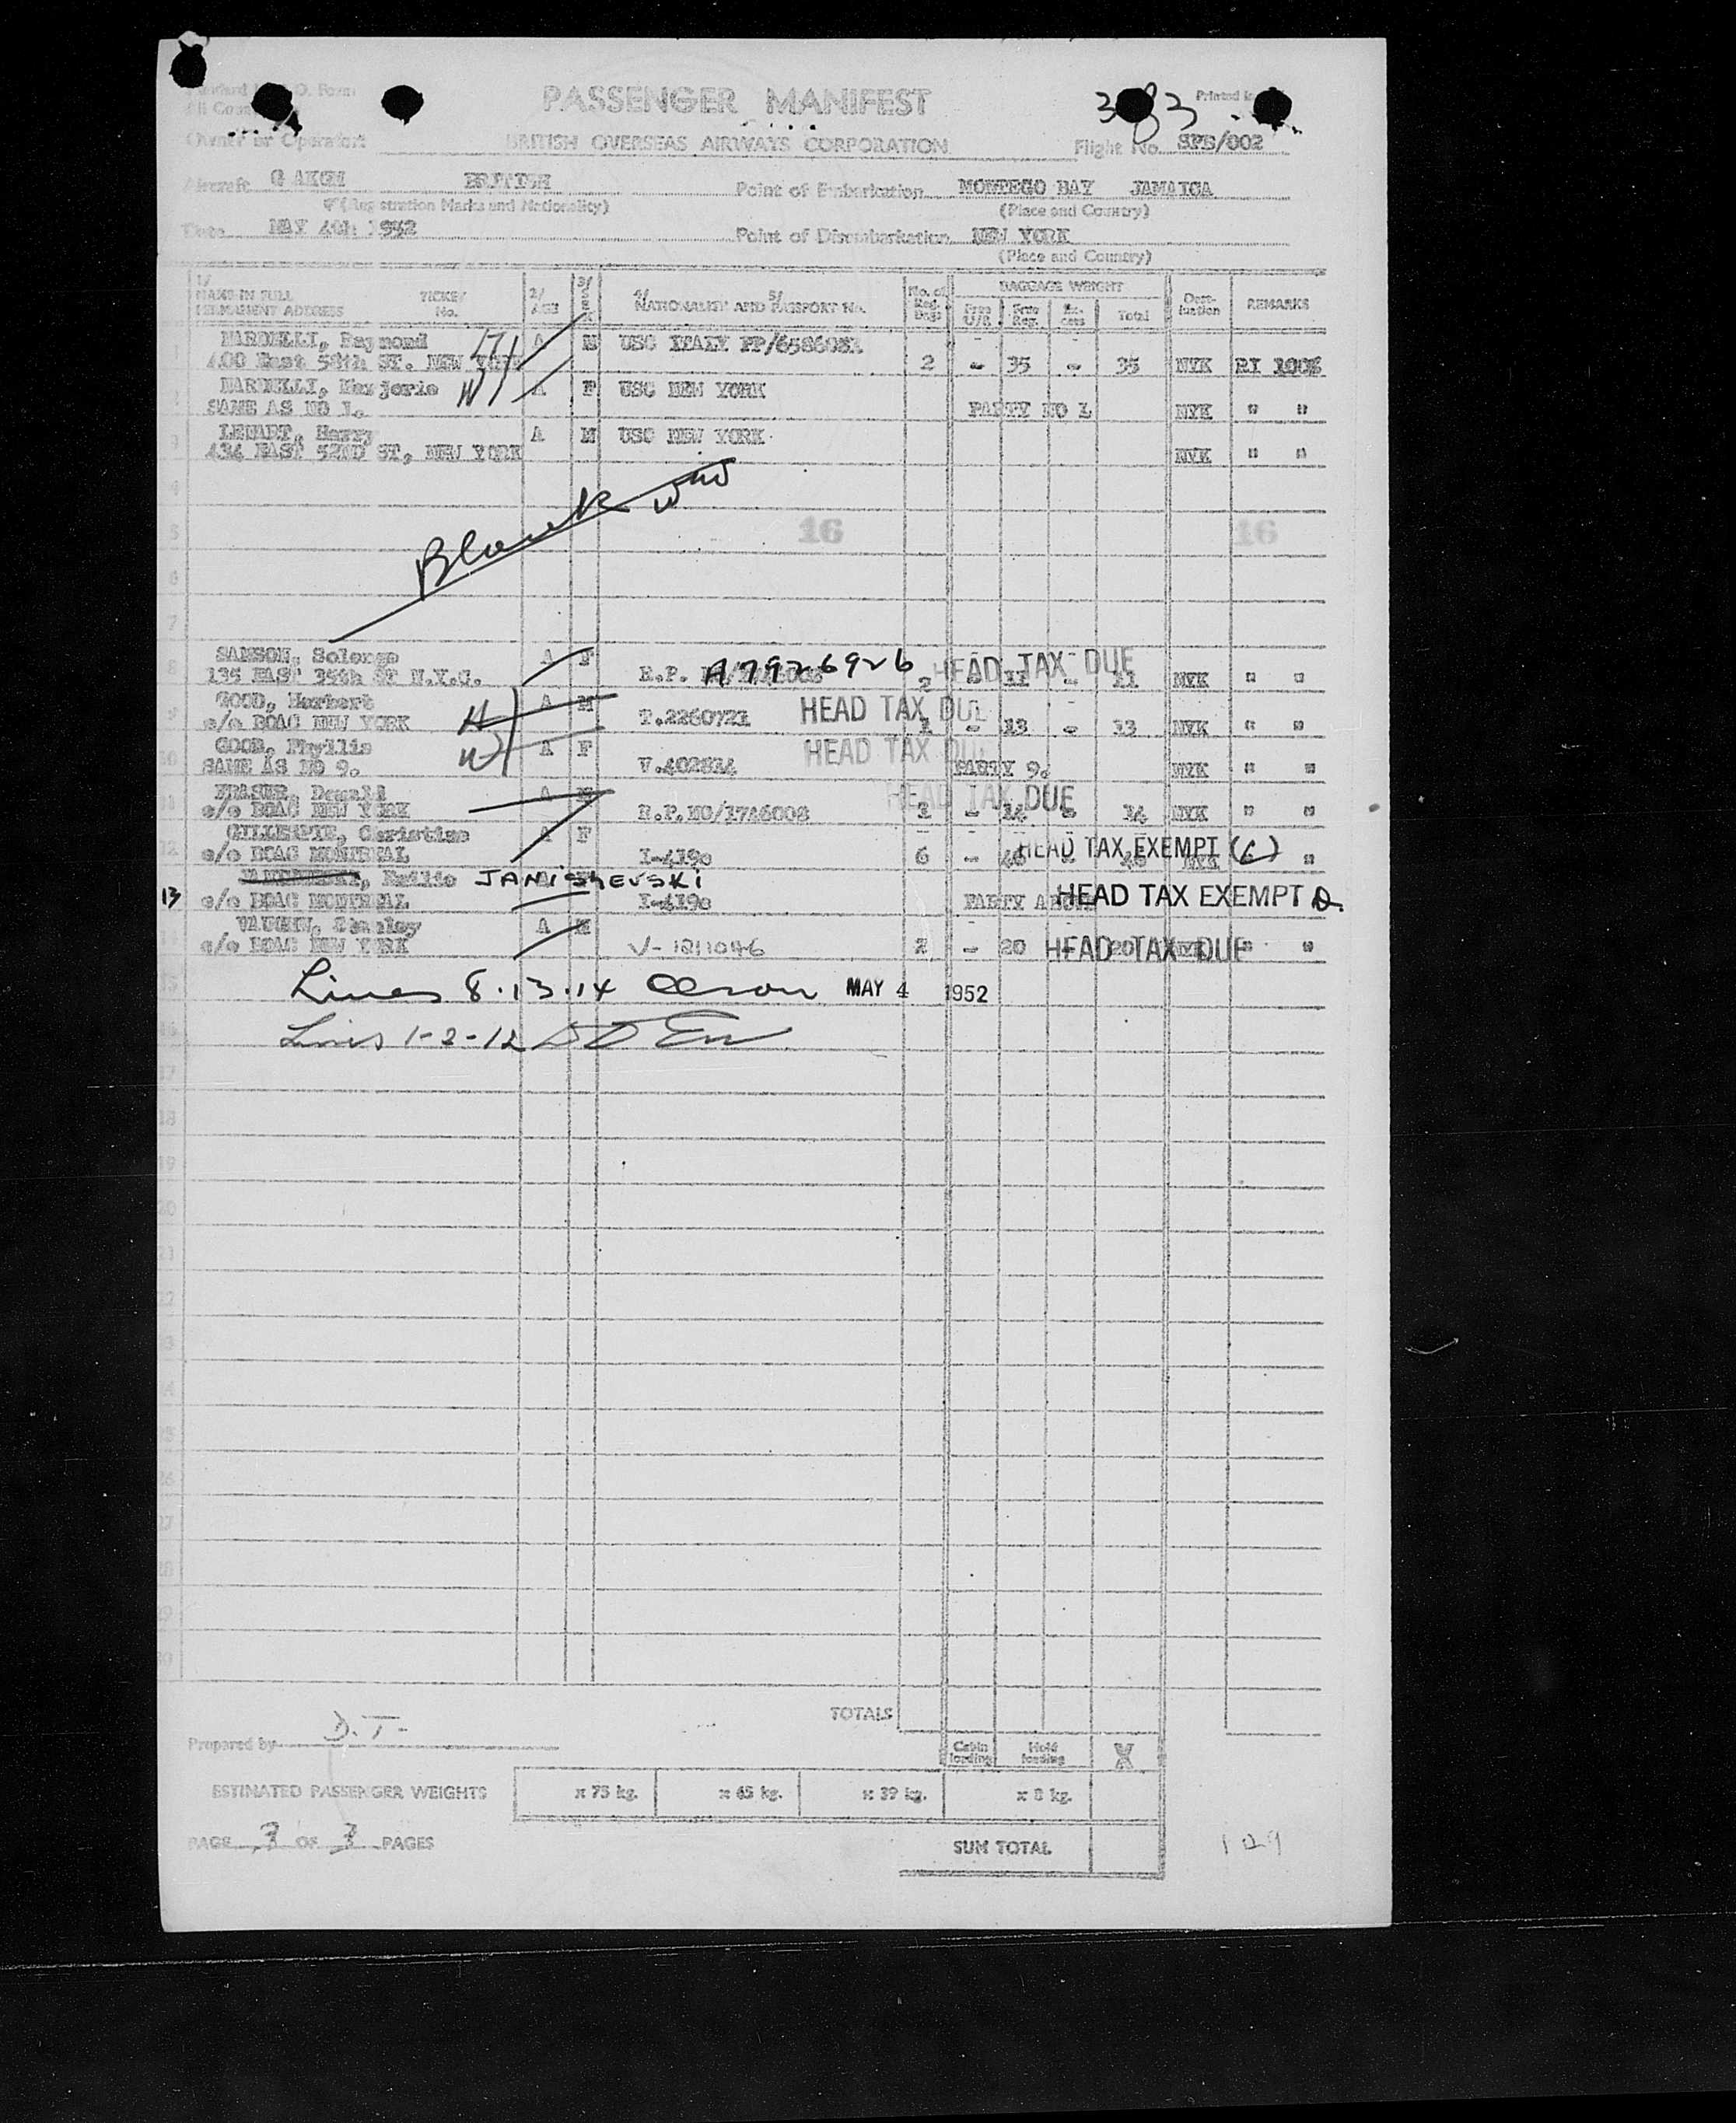 PASSENGER MANIFEST
Owner or Operator: BRITISH OVERSEAS AIRWAYS CORPORATION Flight No. SPB/002
Aircraft BRITISH Point of Embarkation MONTEGO BAY JAMAICA
(Registration Marks and Nationality) (Place and Country)
Date MAY 4th 1952 Point of Disembarkation NEW YORK
(Place and Country)
1/ NAME IN FULL TICKET 2/ 3/ 4/ 5/ No. of BAGGAGE WEIGHT Dest- REMARKS
PERMANENT ADDRESS No. AGE SEX NATIONALITY AND PASSPORT No. Reg. Bags Free U/R Free Reg. Ex- cess Total ination
NARDELLI, Raymond A M USC ITALY PP/
400 East 58th ST. NEW YORK 2 - 35 - 35 NYK RI 100%
NARDELLI, Marjorie W A F USC NEW YORK
SAME AS NO 1. PARTY NO 1 NYK " "
LENART, Harry A M USC NEW YORK
434 EAST 52ND ST, NEW YORK NYK " "
4
Blank
5 16 16
6
7
8 SAMSON, Solange A F A7926926 HEAD TAX DUE
135 EAST 35th ST N.Y.C. R.P. 2 - 11 - 11 NYK " "
GOOD, Herbert H A M HEAD TAX DUE
c/o BOAC NEW YORK T.2260721 1 - 13 - 13 NYK " "
GOOD, Phyllis W A F HEAD TAX DUE
10 SAME AS NO 9. V.402814 PARTY 9. NYK " "
FRASER, Donald A M HEAD TAX DUE
c/o BOAC NEW YORK R.P.NO/1746008 1 - 14 - 14 NYK " "
GILLESPIE, Christine A F HEAD TAX EXEMPT
12 c/o BOAC MONTREAL I-419c 6 - "
JANISHEVSKI HEAD TAX EXEMPT
13 c/o BOAC MONTREAL I-419c PARTY
VAUGHN, Stanley A M
c/o BOAC NEW YORK V-1811046 2 - 20 HEAD TAX DUE 20 NYK " "
15 Lines 8.13.14 MAY 4 1952
Lines 1-2-12
17
18
19
20
TOTALS
Prepared by D.T.
Cabin loading Hold loading X
ESTIMATED PASSENGER WEIGHTS x 75 kg. x 65 kg. x 39 kg. x 8 kg.
PAGE 3 OF 3 PAGES SUM TOTAL 129